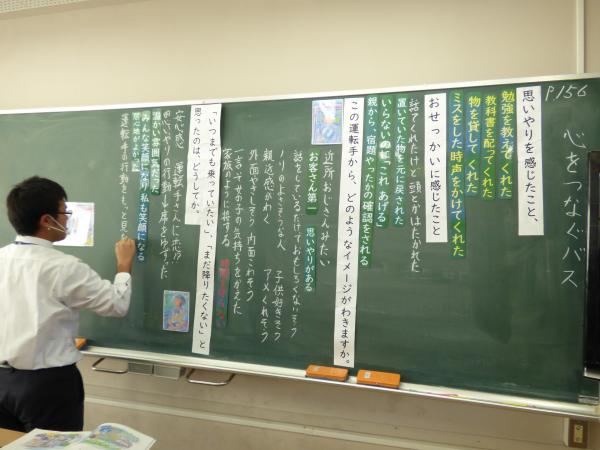 P.156
心をつなぐバス
思いやりを感じたこと、
勉強を教えてくれた
教科書を配ってくれた
物を貸してくれた
ミスをした時声をかけてくれた
おせっかいに感じたこと
話てくれたけど 頭とかはたかれた
置いていた物を元に戻された
いらないのに「これ あげる」
親から、宿題やったかの確認をされる
この運転手から、どのようなイメージがわきますか。
近所おじさんみたい
お客さん第一 思いやりがある
話をしているだけでおもしろくないそう
ノリのよさそうな人 子供好きそう
親近感がわく アメくれそう
外面やさしそう 内面こわそう
一言で女の子の気持ちをかえた
家族のように接する
「いつまでも乗っていたい」「まだ降りたくない」と
思ったのは、どうしてか。
安心感 運転手さんに恋
男の子の行動が席をゆずった
温かい雰囲気だった
みんな笑顔になり私も笑顔になる
居心地がよかった
運転手の行動をもっと見